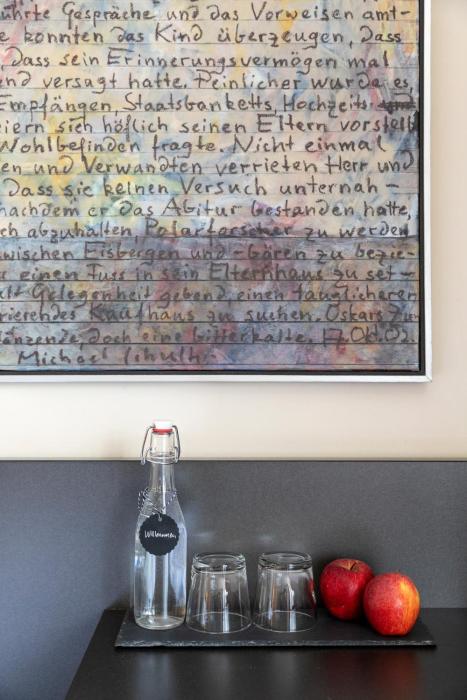 ührte Gespräche und das Vorweisen amt-
e konnten das Kind überzeugen, dass
, dass sein Erinnerungsvermögen mal
end versagt hatte. Peinlicher wurde es
Empfängen, Staatsbanketts, Hochzeits
eiern sich höflich seinen Eltern vorstell
Wohlbefinden fragte. Nicht einmal
en und Verwandten verrieten Herr und
, dass sie keinen Versuch unternah-
nachdem er das Abitur bestanden hatte,
ch abzuhalten, Polarforscher zu werden
wischen Eisbergen und -bären zu bezie-
s einen Fuss in sein Elternhaus zu set-
alt Gelegenheit gebend einen tauglicheren
rierendes Kaufhaus zu suchen. Oskars Zun
änzende, doch eine bitterkalte. 17. Okt. 02.
Michael
Willkommen